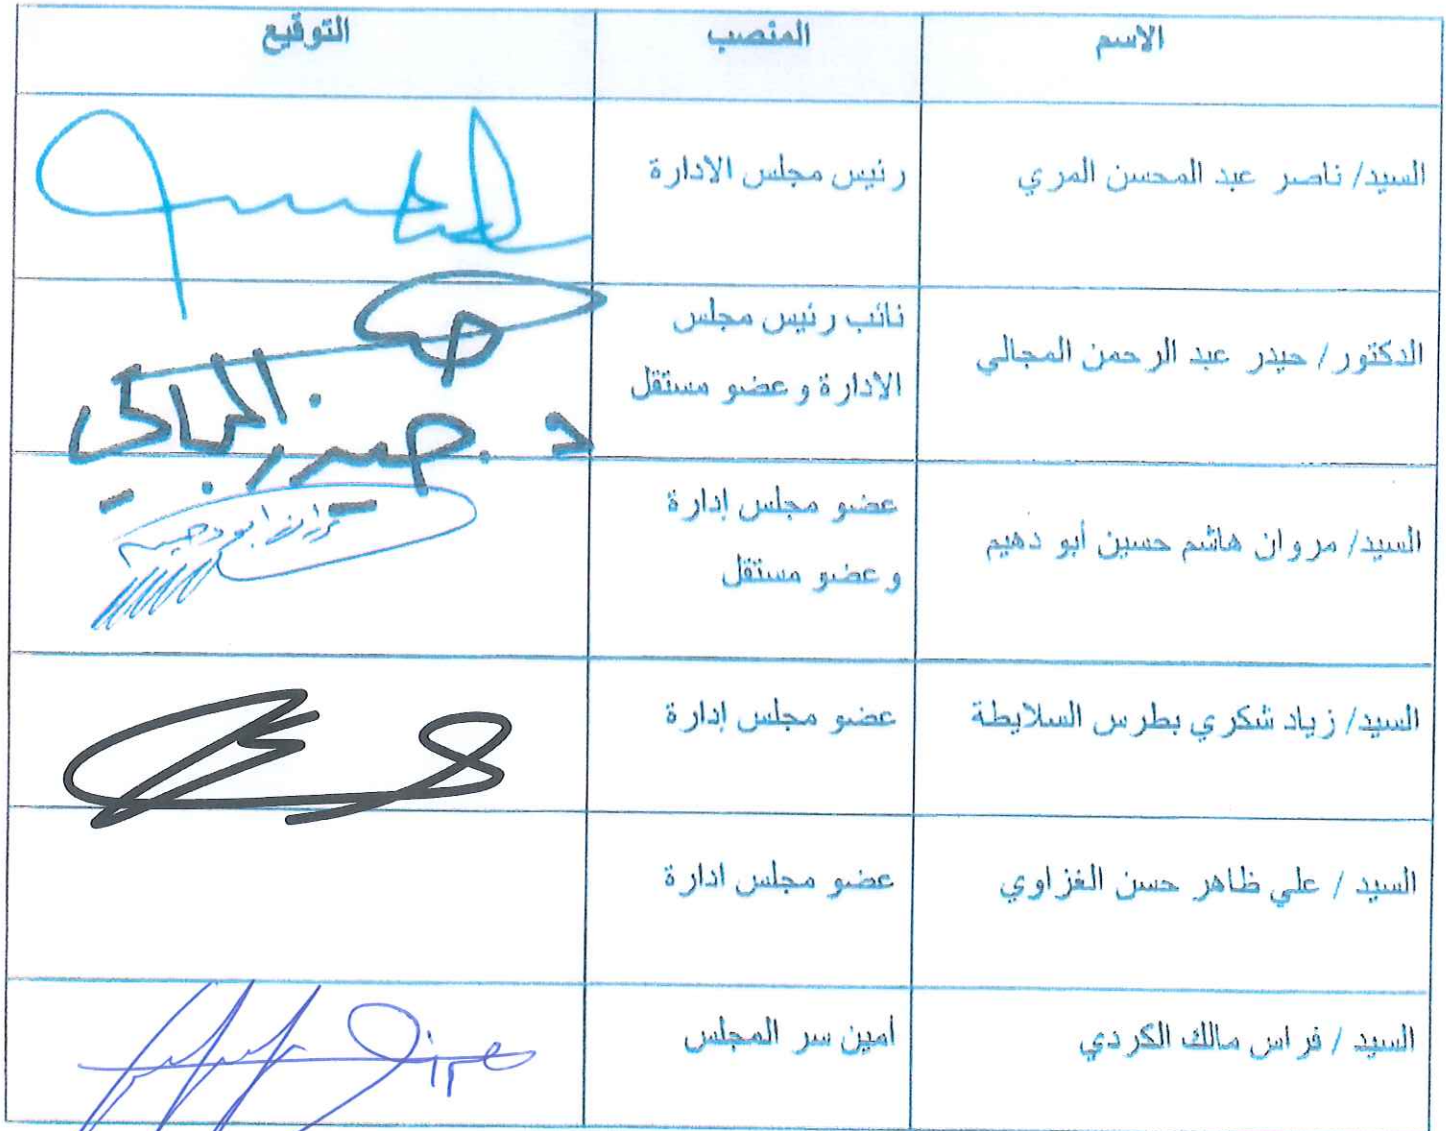 الاسم المنصب التوقيع
السيد/ ناصر عبد المحسن المري رئيس مجلس الادارة
الدكتور/ حيدر عبد الرحمن المجالي نائب رئيس مجلس
الادارة وعضو مستقل
د. حيدر المجالي
السيد/ مروان هاشم حسين أبو دهيم عضو مجلس إدارة
وعضو مستقل
مروان ابو دهيم
السيد/ زياد شكري بطرس السلايطة عضو مجلس إدارة
السيد / علي ظاهر حسن الغزاوي عضو مجلس ادارة
السيد / فراس مالك الكردي أمين سر المجلس